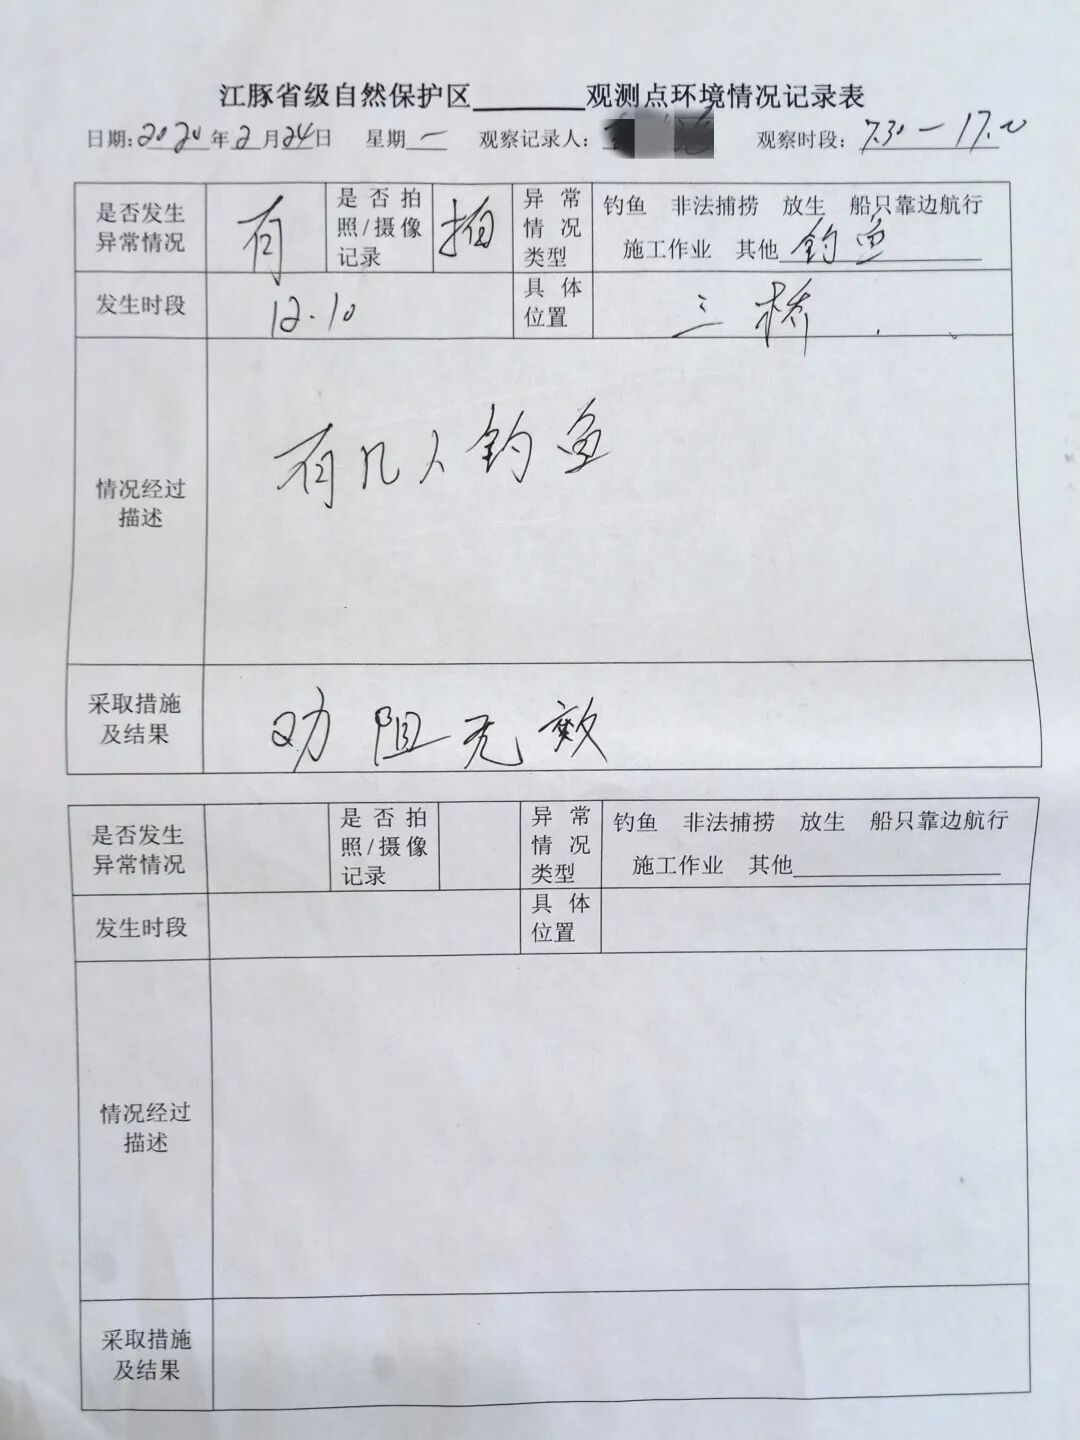 江豚省级自然保护区________观测点环境情况记录表
日期:2020年2月24日 星期一 观察记录人: 观察时段:7.30一17.00
是否发生异常情况 有 是否拍照/摄像记录 拍 异常情况类型 钓鱼 非法捕捞 放生 船只靠边航行
施工作业 其他 钓鱼
发生时段 12.10 具体位置 三桥
情况经过描述 有几人钓鱼
采取措施及结果 劝阻无效
是否发生异常情况 是否拍照/摄像记录 异常情况类型 钓鱼 非法捕捞 放生 船只靠边航行
施工作业 其他________
发生时段 具体位置
情况经过描述
采取措施及结果